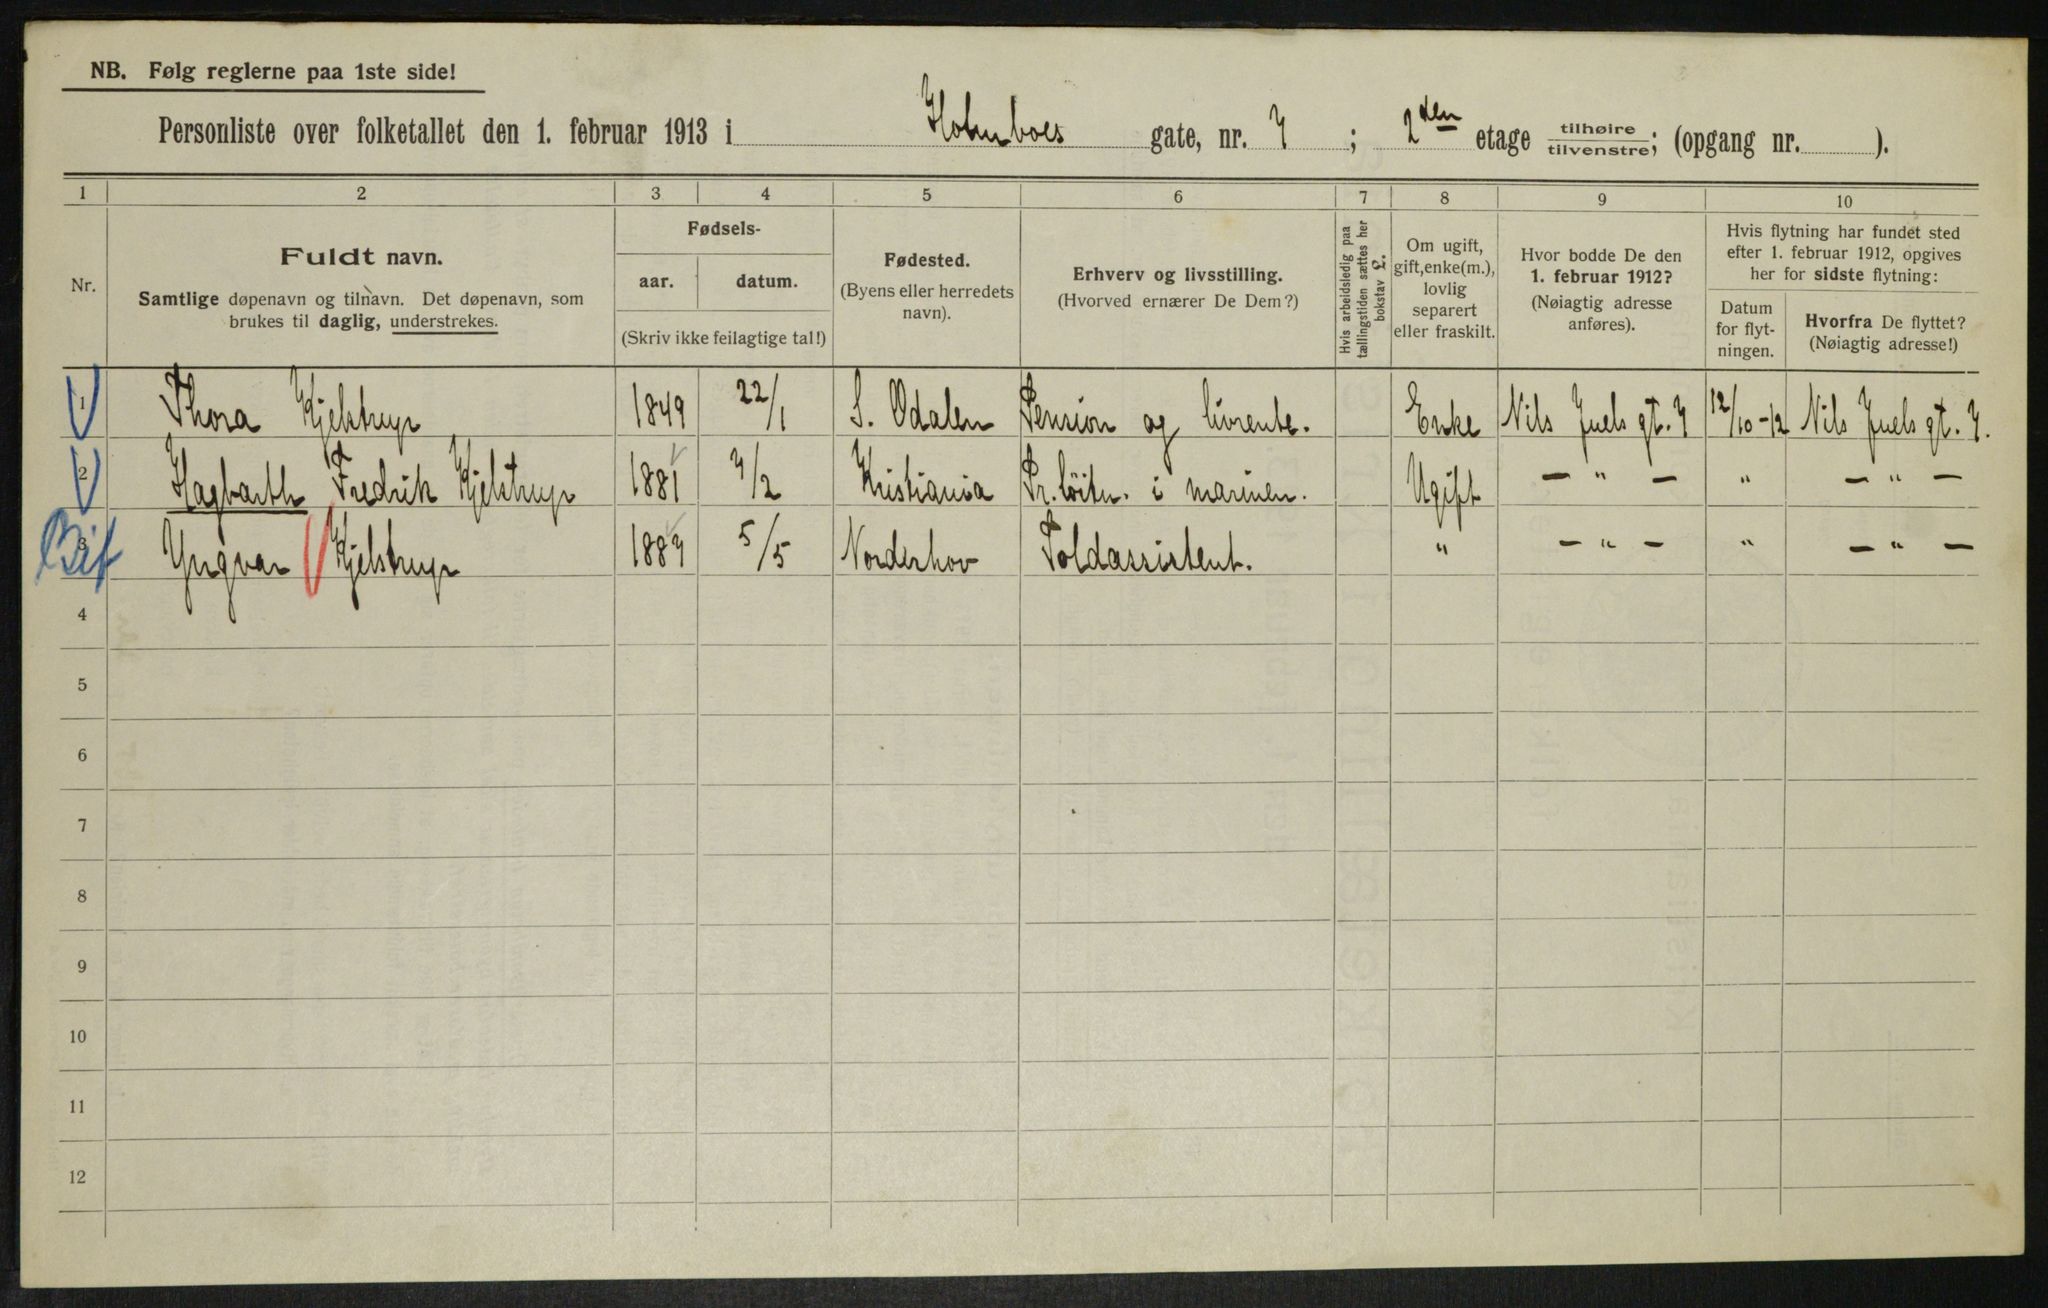 NB. Følg reglerne paa 1ste side!
Personliste over folketallet den 1. februar 1913 i Holmboes gate, nr. 7 ; 2den etage tilhøire tilvenstre; (opgang nr. ).
1 2 3 4 5 6 7 8 9 10
Nr.
Fuldt navn.
Samtlige døpenavn og tilnavn. Det døpenavn, som
brukes til daglig, understrekes.
Fødsels-
aar. datum.
(Skriv ikke feilagtige tal!)
Fødested.
(Byens eller herredets
navn).
Erhverv og livsstilling.
(Hvorved ernærer De Dem?)
Hvis arbeidsledig paa
tællingstiden sættes her
bokstav L.
Om ugift,
gift, enke(m.),
lovlig
separert
eller fraskilt.
Hvor bodde De den
1. februar 1912?
(Nøiagtig adresse
anføres).
Hvis flytning har fundet sted
efter 1. februar 1912, opgives
her for sidste flytning:
Datum
for flyt-
ningen.
Hvorfra De flyttet?
(Nøiagtig adresse!)
1 Thora Kjelstrup 1849 22/1 S. Odalen Pension og livrente. Enke Nils Juels gt. 7 12/10-12 Nils Juels gt. 7.
2 Hagbarth Fredrik Kjelstrup 1881 7/2 Kristiania Pr. løitn. i marinen. Ugift — " — " — " —
Bif 3 Yngvar Kjelstrup 1887 5/5 Norderhov Toldassistent. " — " — " — " —
4
5
6
7
8
9
10
11
12